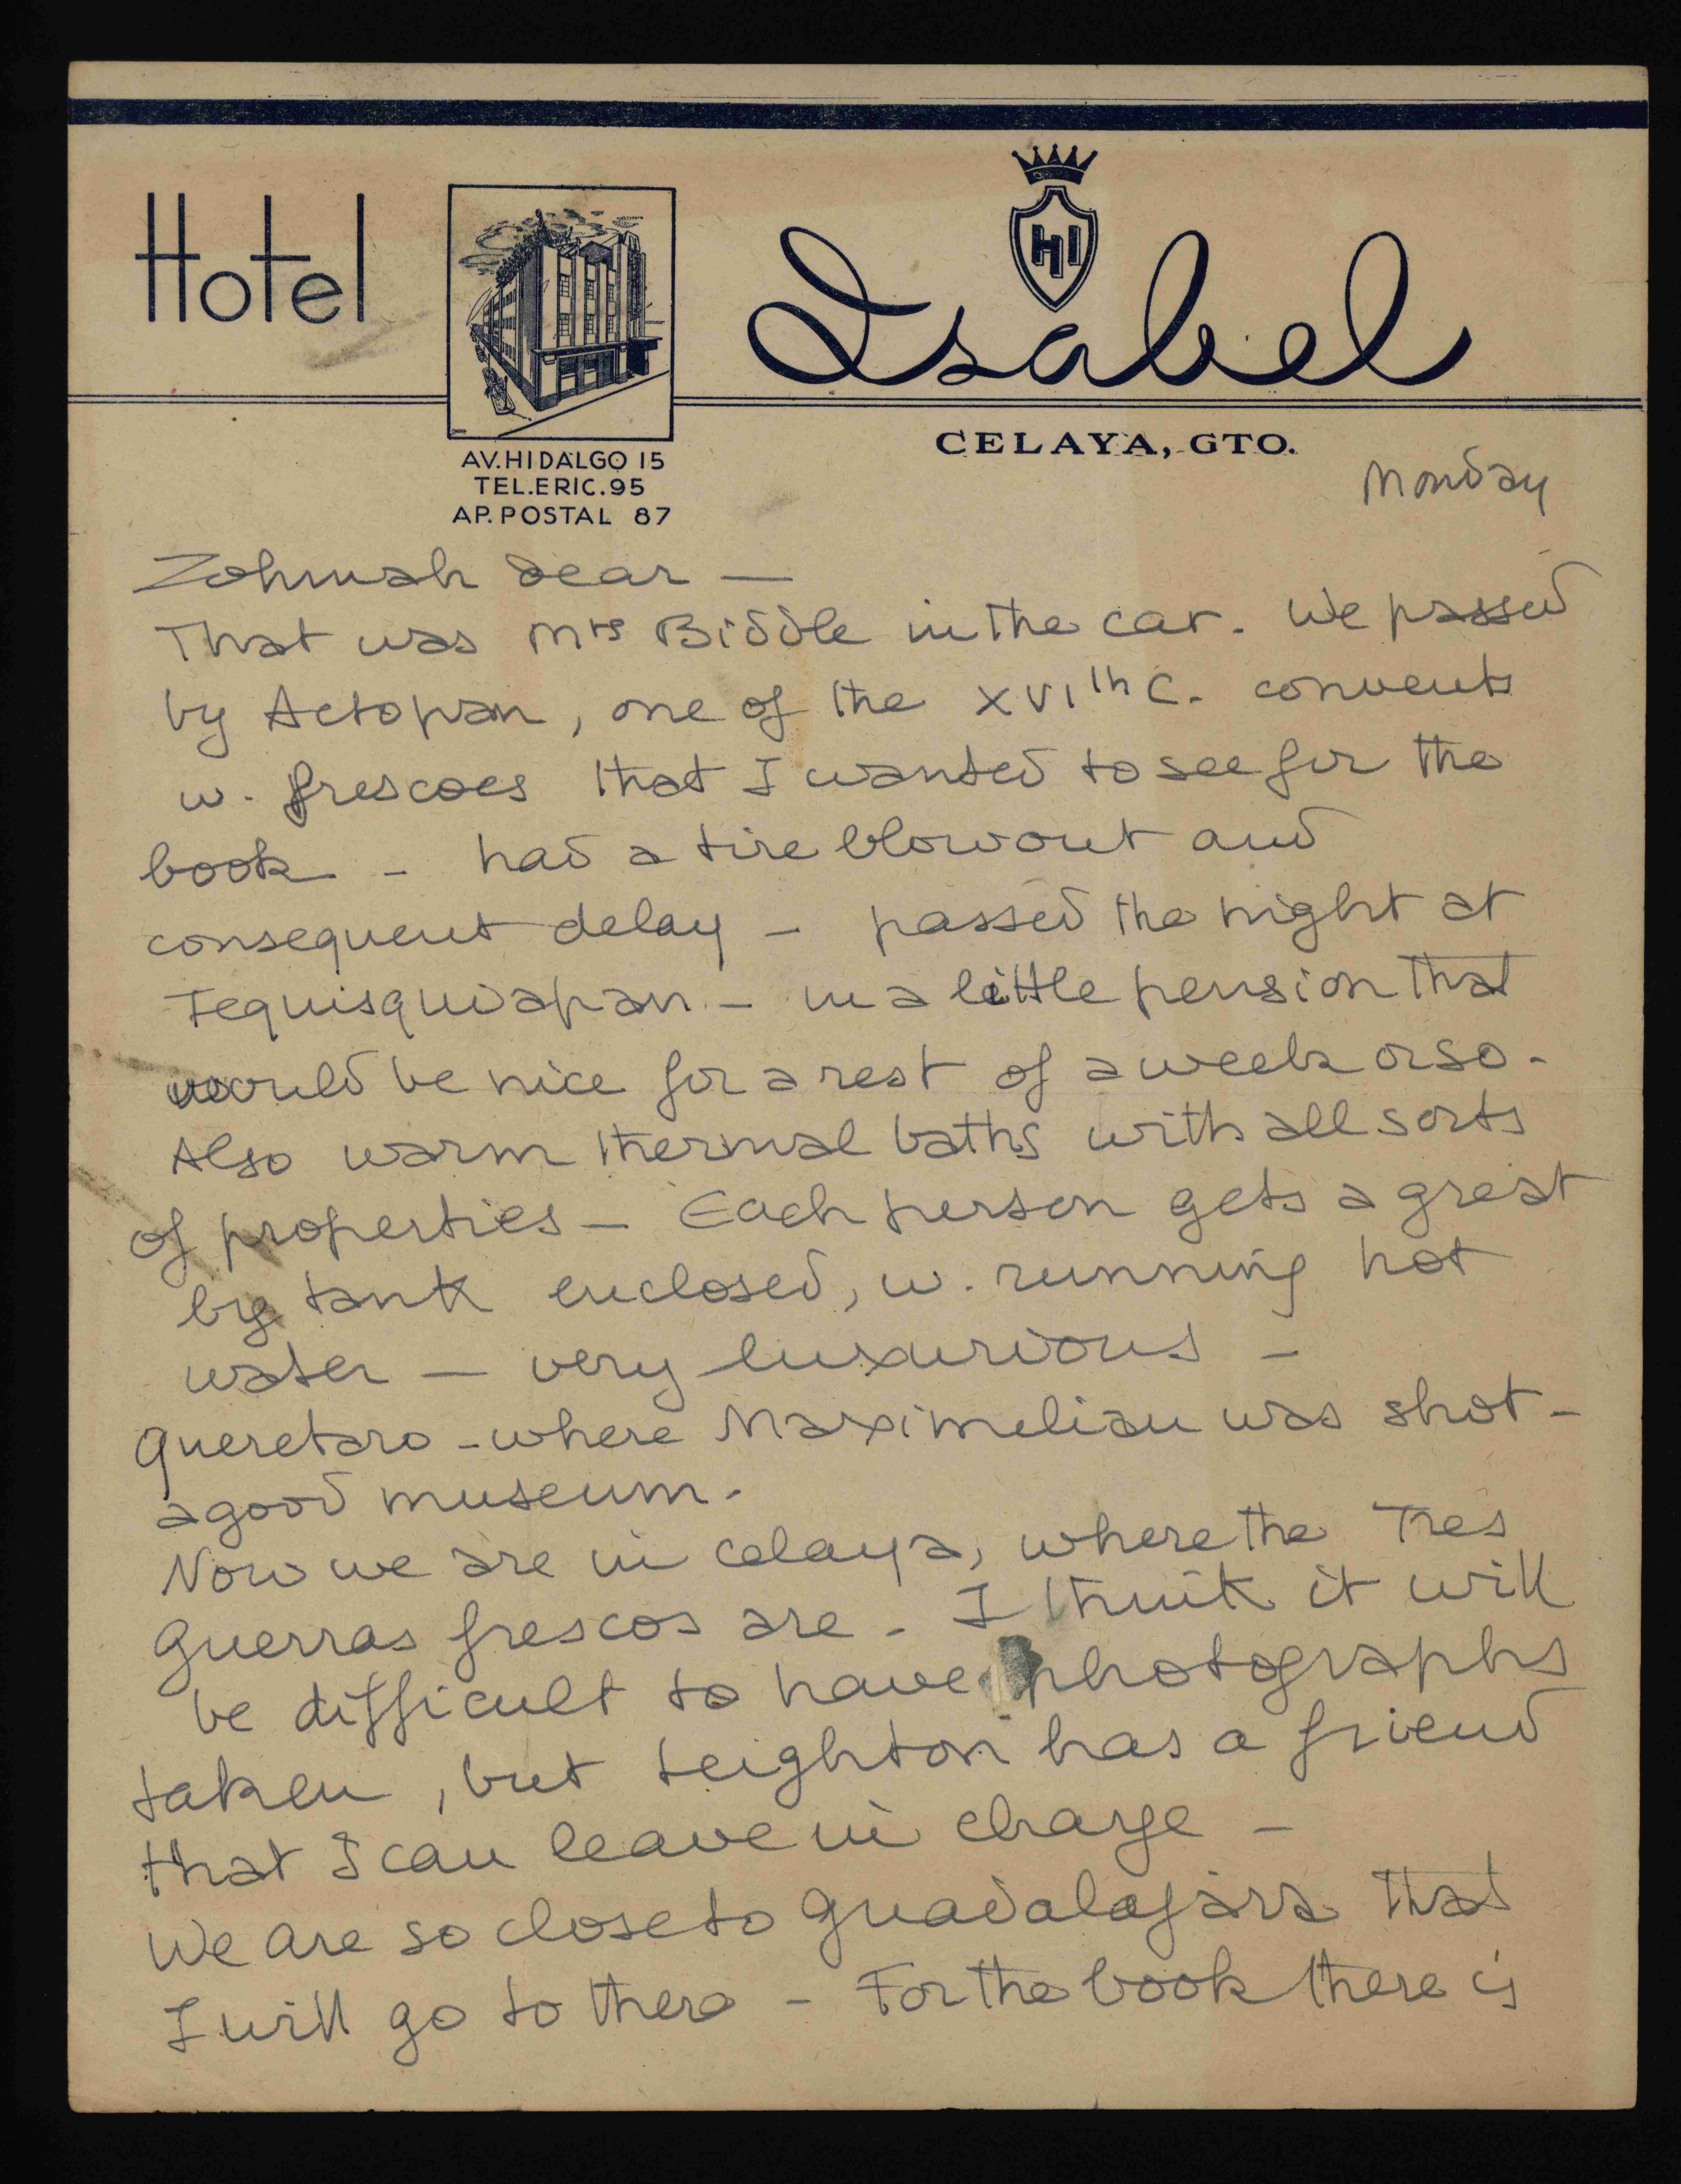 Hotel
HI
Isabel
CELAYA, GTO.
AV. HIDALGO 15
TEL. ERIC. 95
AP. POSTAL 87
Monday
Zohmah dear —
That was Mrs Biddle in the car. We passed
by Actopan, one of the XVIth C. convents
w. frescoes that I wanted to see for the
book - had a tire blowout and
consequent delay - passed the night at
Tequisquiapan - in a little pension that
would be nice for a rest of a week or so -
Also warm thermal baths with all sorts
of properties - Each person gets a great
big tank enclosed, w. running hot
water — very luxurious -
Queretaro - where Maximelian was shot -
a good museum.
Now we are in Celaya, where the Tres
Guerras frescos are - I think it will
be difficult to have photographs
taken, but Leighton has a friend
that I can leave in charge -
We are so close to Guadalajara that
I will go to there - For the book there is